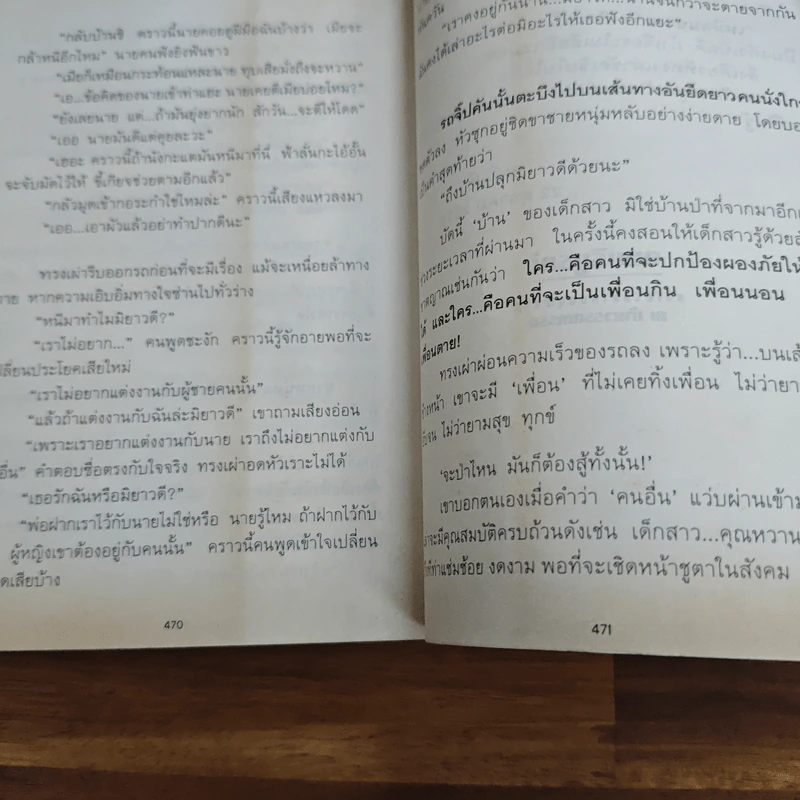 “กลับบ้านซิ คราวนี้นายคอยดูฝีมือฉันบ้างว่า เมียจะ
กล้าหนีอีกไหม” นายคนฟังยิงฟันขาว
“เมียก็เหมือนกระท้อนแหละนาย ทุบเสียมั่งถึงจะหวาน”
“เอ...ข้อคิดของนายเข้าท่าแฮะ นายเคยตีเมียบ่อยไหม?”
“ยังเลยนาย แต่...ถ้ามันยุ่งยากนัก สักวัน...จะตีให้โดด”
“เออ นายมันดีแต่คุยละวะ”
“เฮอะ คราวนี้ถ้านังกะแตมันหนีมาที่นี่ ฟ้าลั่นกะไอ้อั้น
จะจับมัดไว้ให้ ขี้เกียจช่วยตามอีกแล้ว”
“กลัวมุดเข้ากอระกำใช่ไหมล่ะ” คราวนี้เสียงแหวลงมา
“เออ...เอาผัวแล้วอย่าทำปากดีนะ”
ทรงเผ่ารีบออกรถก่อนที่จะมีเรื่อง แม้จะเหนื่อยล้าทาง
กาย หากความเอิบอิ่มทางใจซ่านไปทั่วร่าง
“หนีมาทำไมมิยาวดี?”
“เราไม่อยาก...” คนพูดชะงัก คราวนี้รู้จักอายพอที่จะ
เปลี่ยนประโยคเสียใหม่
“เราไม่อยากแต่งงานกับผู้ชายคนนั้น”
“แล้วถ้าแต่งงานกับฉันล่ะมิยาวดี” เขาถามเสียงอ่อน
“เพราะเราอยากแต่งงานกับนาย เราถึงไม่อยากแต่งกับ
อื่น” คำตอบซื่อตรงกับใจจริง ทรงเผ่าอดหัวเราะไม่ได้
“เธอรักฉันหรือมิยาวดี?”
“พ่อฝากเราไว้กับนายไม่ใช่หรือ นายรู้ไหม ถ้าฝากไว้กับ
ผู้หญิงเขาต้องอยู่กับคนนั้น” คราวนี้คนพูดเข้าใจเปลี่ยน
ดเสียบ้าง
470
“เราคงอยู่กันนาน...
ป็นคงได้เล่าอะไรต่อมิอะไรให้เธอฟังอีกแยะ”
รถจี๊ปคันนั้นตะบึงไปบนเส้นทางอันยืดยาวคนนั่งใกล้
ทดตัวลง หัวซุกอยู่ชิดขาชายหนุ่มหลับอย่างง่ายดาย โดยบอ
เป็นคำสุดท้ายว่า
“ถึงบ้านปลุกมิยาวดีด้วยนะ”
บัดนี้ ‘บ้าน’ ของเด็กสาว มิใช่บ้านป่าที่จากมาอีก
วงระยะเวลาที่ผ่านมา ในครั้งนี้คงสอนให้เด็กสาวรู้ด้วยสั
าตญาณเช่นกันว่า ใคร...คือคนที่จะปกป้องผองภัยให้
ได้ และใคร...คือคนที่จะเป็นเพื่อนกิน เพื่อนนอน
เพื่อนตาย!
ทรงเผ่าผ่อนความเร็วของรถลง เพราะรู้ว่า...บนเส้
างหน้า เขาจะมี ‘เพื่อน’ ที่ไม่เคยทิ้งเพื่อน ไม่ว่ายา
จน ไม่ว่ายามสุข ทุกข์
‘จะป่าไหน มันก็ต้องสู้ทั้งนั้น!’
เขาบอกตนเองเมื่อคำว่า ‘คนอื่น’ แว่บผ่านเข้า
าจะมีคุณสมบัติครบถ้วนดังเช่น เด็กสาว...คุณหวาน
ท่าแช่มช้อย งดงาม พอที่จะเชิดหน้าชูตาในสังคม
471